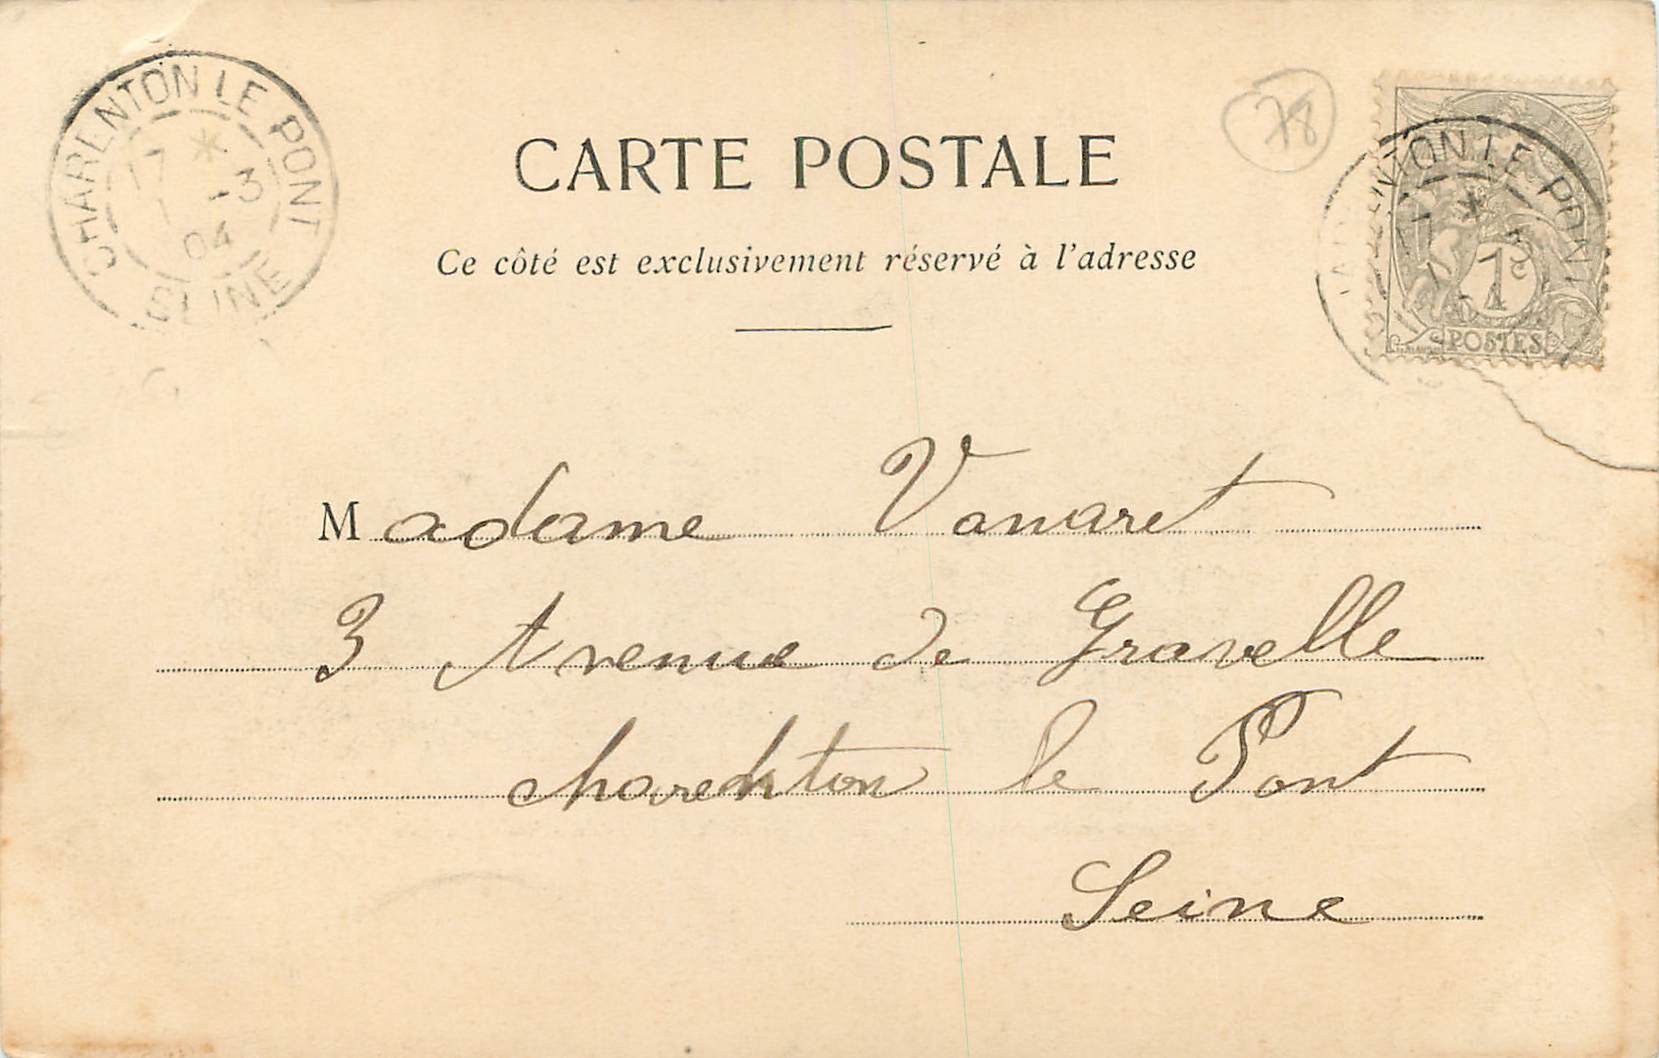 CHARENTON LE PONT
17 * 1 -3
04
SEINE
78
CHARENTON LE PONT
1c
POSTES
CARTE POSTALE
Ce côté est exclusivement réservé à l'adresse
Madame Vanaret
3 Avenue de Gravelle
charenton le Pont
Seine